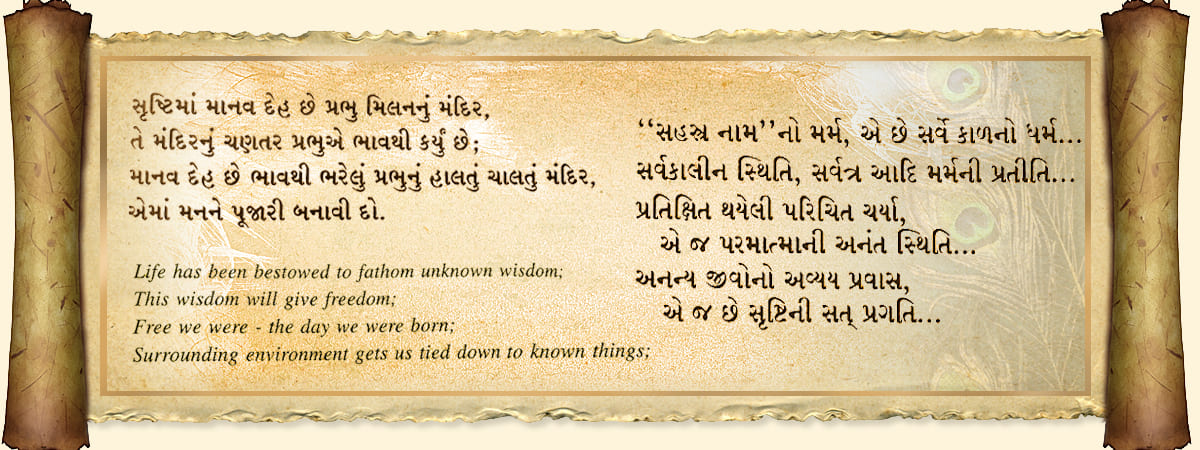 સૃષ્ટિમાં માનવ દેહ છે પ્રભુ મિલનનું મંદિર,
તે મંદિરનું ચણતર પ્રભુએ ભાવથી કર્યું છે;
માનવ દેહ છે ભાવથી ભરેલું પ્રભુનું હાલતું ચાલતું મંદિર,
એમાં મનને પૂજારી બનાવી દો.
Life has been bestowed to fathom unknown wisdom;
This wisdom will give freedom;
Free we were - the day we were born;
Surrounding environment gets us tied down to known things;
“સહસ્ત્ર નામ”નો મર્મ, એ છે સર્વે કાળનો ધર્મ...
સર્વકાલીન સ્થિતિ, સર્વત્ર આદિ મર્મની પ્રતીતિ...
પ્રતિક્ષિત થયેલી પરિચિત ચર્યા,
એ જ પરમાત્માની અનંત સ્થિતિ...
અનન્ય જીવોનો અવ્યય પ્રવાસ,
એ જ છે સૃષ્ટિની સત્ પ્રગતિ...